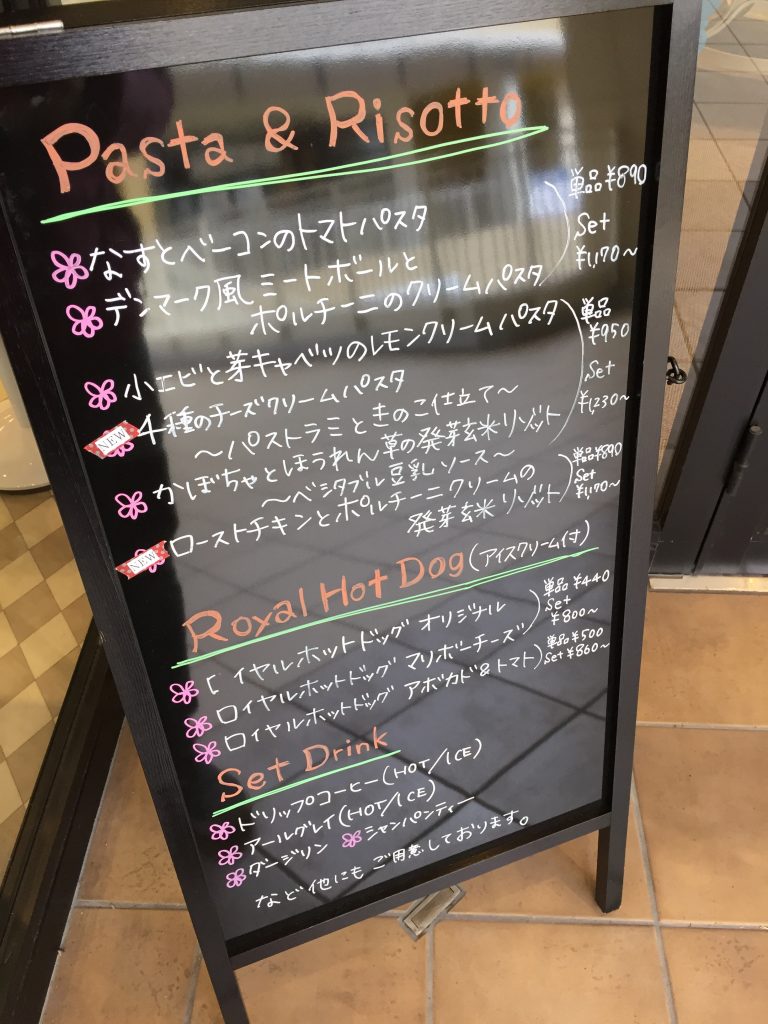 Pasta & Risotto
なすとベーコンのトマトパスタ
デンマーク風ミートボールと
ポルチーニのクリームパスタ
単品¥890
Set
¥1,170~
小エビと芽キャベツのレモンクリームパスタ
NEW 4種のチーズクリームパスタ
~パストラミときのこ仕立て~
かぼちゃとほうれん草の発芽玄米リゾット
~ベジタブル豆乳ソース~
単品
¥950
Set
¥1,230~
NEW ローストチキンとポルチーニクリームの
発芽玄米リゾット
単品¥890
Set
¥1,170~
Royal Hot Dog (アイスクリーム付)
イヤルホットドッグ オリジナル
ロイヤルホットドッグ マリボーチーズ
単品¥440
Set
¥800~
ロイヤルホットドッグ アボカド&トマト
単品¥500
Set ¥860~
Set Drink
ドリップコーヒー(HOT/ICE)
アールグレイ(HOT/ICE)
ダージリン シャンパンティー
など他にもご用意しております。